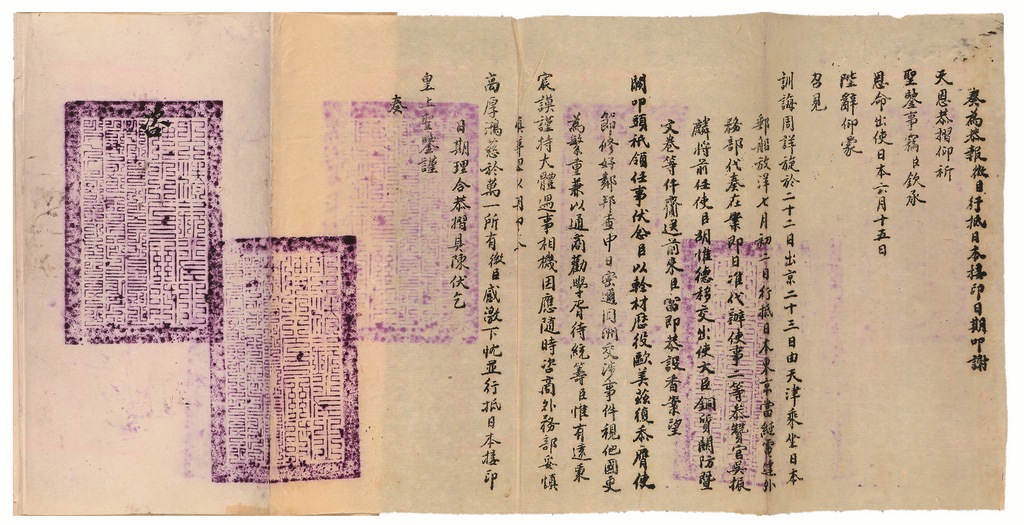 奏為恭報微臣行抵日本接印日期叩謝
天恩恭摺仰祈
聖鑒事竊臣欽承
恩命出使日本六月十五日
陛辭仰蒙
召見
訓誨周詳旋於二十二日出京二十三日由天津乘坐日本
郵船放洋七月初二日行抵日本東京當經電達外
務部代奏在案即日准代辦使事二等參贊官吳振
麟將前任使臣胡惟德移交出使大臣銅質關防暨
文卷等件齎送前來臣當即恭設香案望
闕叩頭祇領任事伏念臣以輇材歷役歐美茲復忝膺使
節修好鄰邦查中日密邇同洲交涉事件視他國更
為繁重兼以通商勸學胥待統籌臣惟有遠秉
宸謨謹持大體遇事相機因應隨時咨商外務部妥慎
高厚鴻慈於萬一所有微臣感激下忱並行抵日本接印
日期理合恭摺具陳伏乞
皇上聖鑒謹
奏
咨